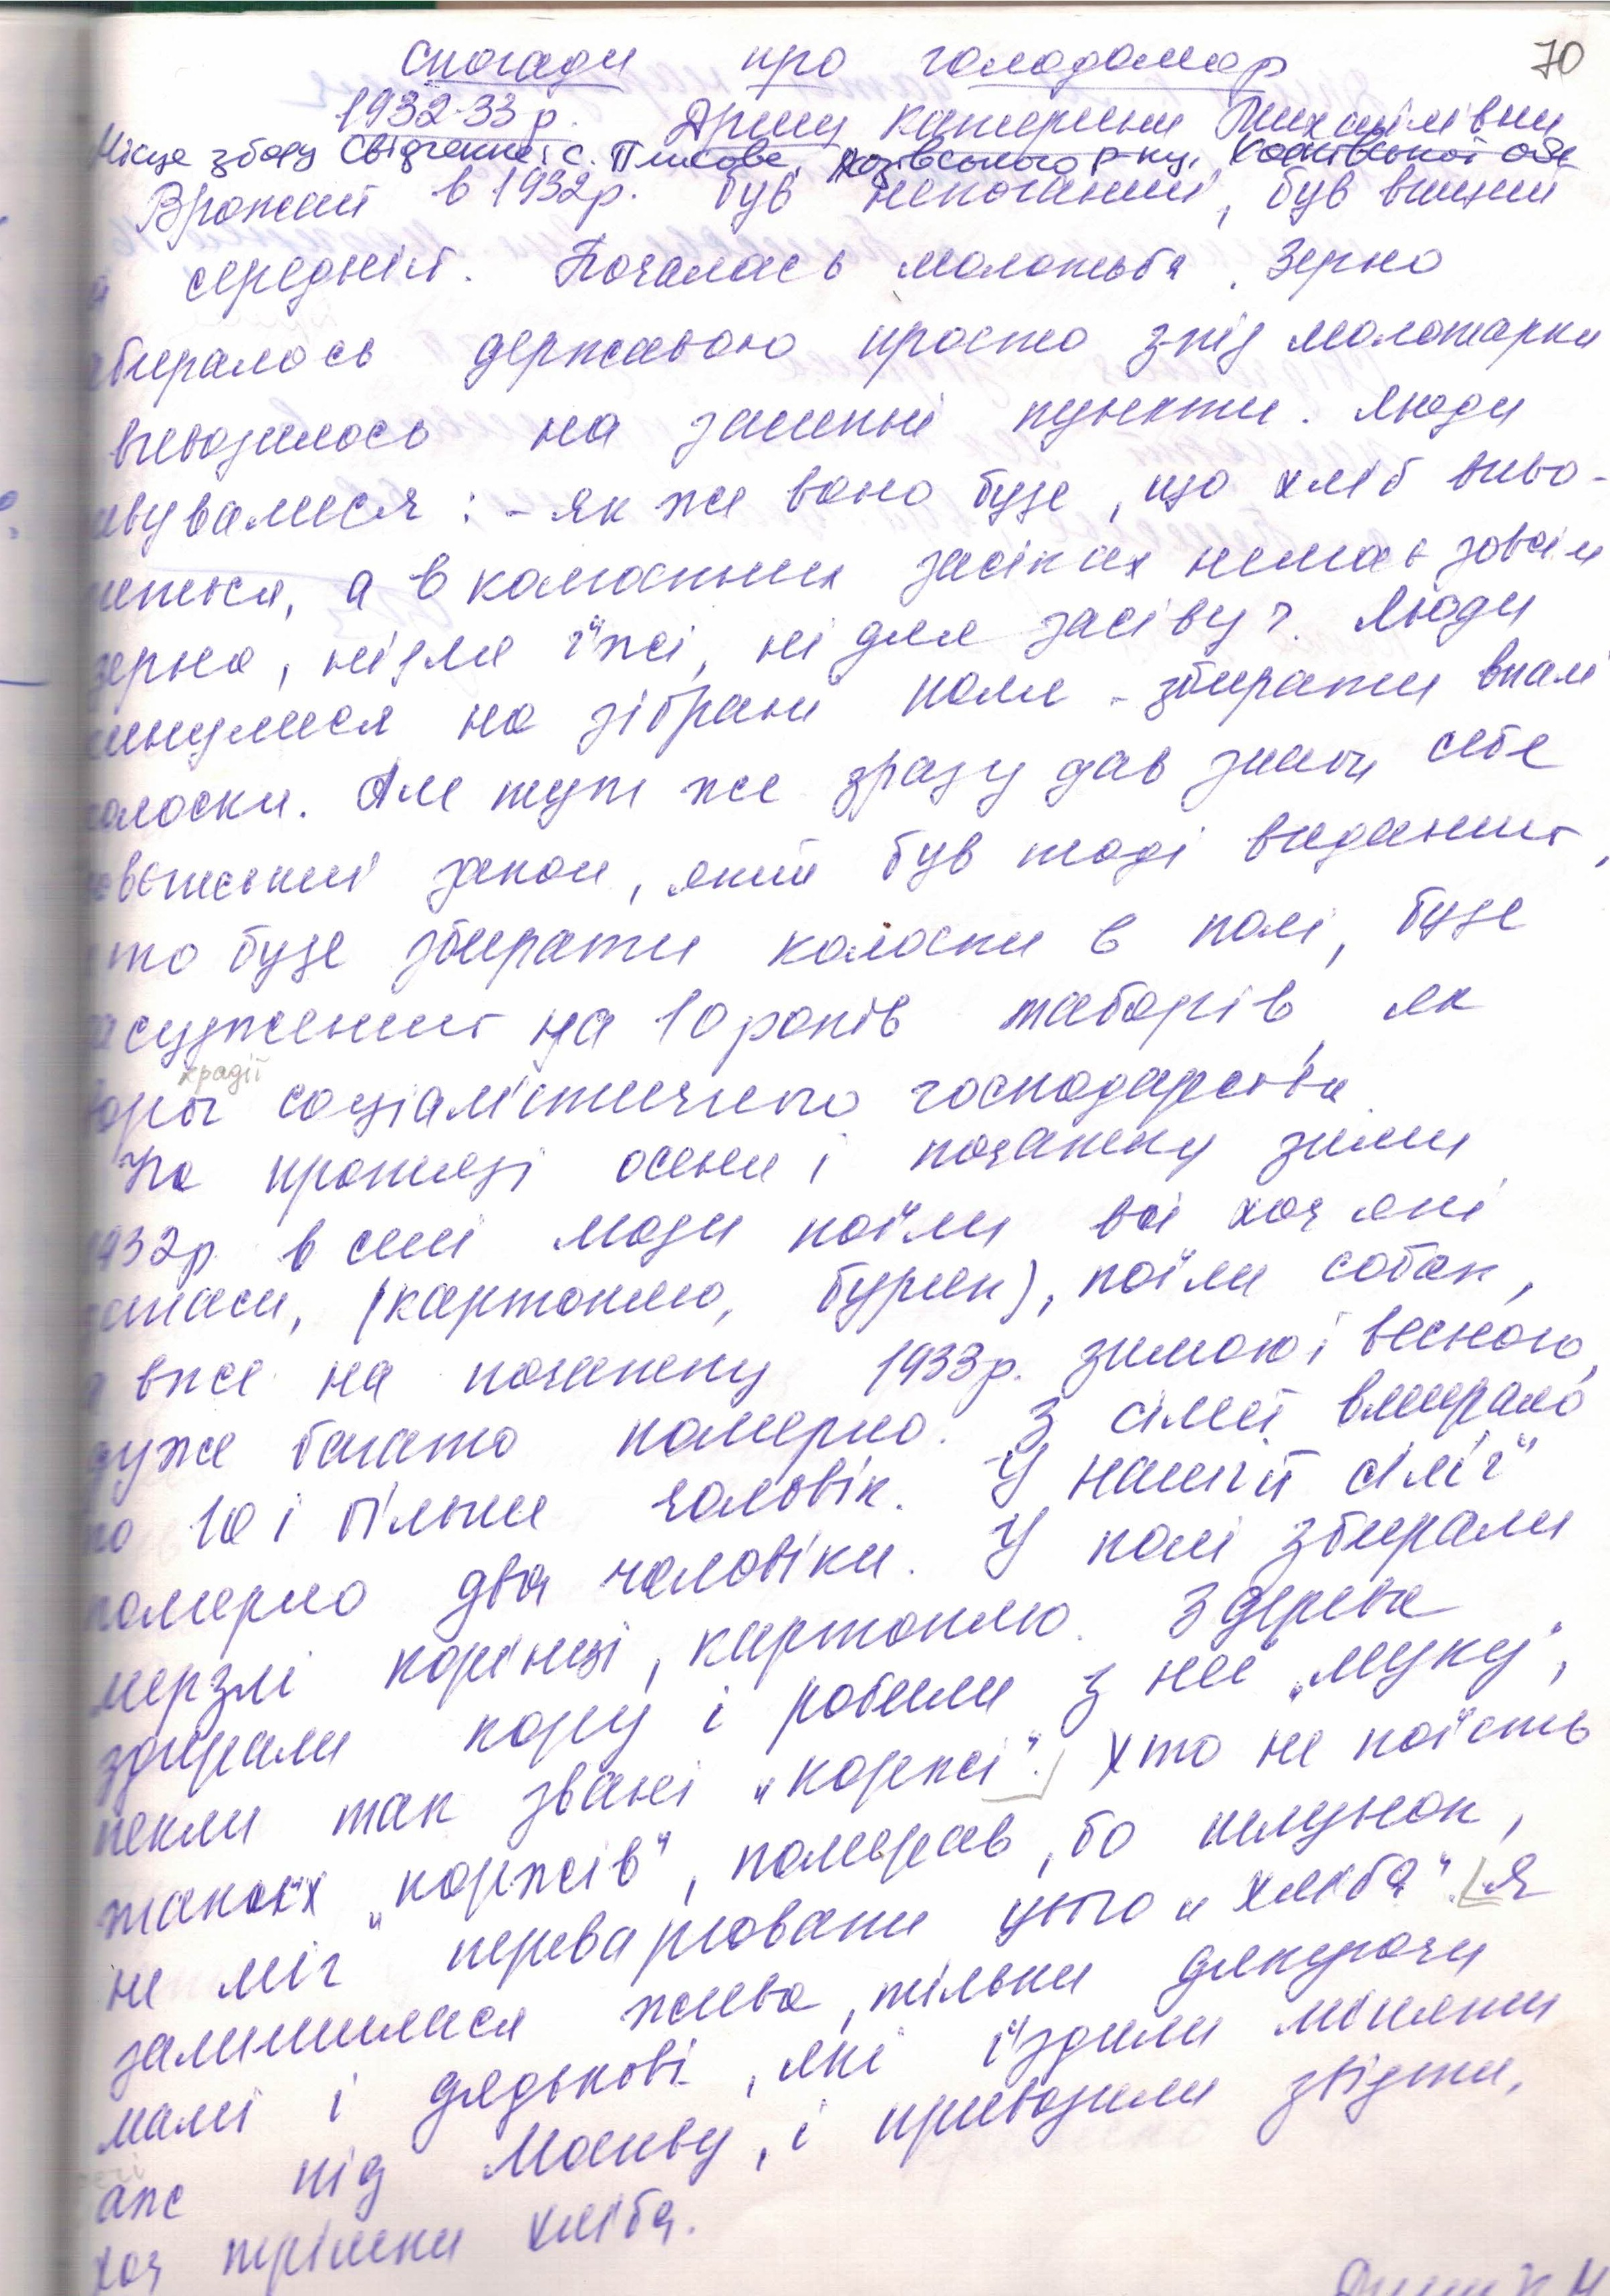 70
Спогади про голодомор
1932-33 р. Катерини Михайлівни
Місце збору свідчення: с. Лозівського р-ну, Харківської обл
Врожай в 1932р. був непоганий, був вищий
а середній. Почалась молотьба. Зерно
бералось державою просто з під молотарки
вивозилось на заготпункти. Люди
ивувалися: - як же воно буде, що хліб виво-
иться, а в колгоспних засіках немає зовсім
зерна, ні для їжі, ні для засіву?. Люди
кинулися на зібрані поля - збирати впалі
колоски. Але тут же зразу дав знати себе
закон, який був тоді виданий,
хто буде збирати колоски в полі, буде
асуджений на 10 років таборів, як
крадії
вори соціалістичного господарства.
На протязі осени і початку зими
1932р. в селі люди поїли всі хоч які
запаси, (картоплю, буряк), поїли собак,
а вже на початку 1933р. зимою і весною,
дуже багато померло. З сімей вмирало
по 10 і більше чоловік. У нашій сім'ї
померло два чоловіки. У полі збирали
мерзлі корінці, картоплю. З дерева
здирали кору і робили з неї „муку",
пекли так звані „коржі". Хто не поїсть
таких „коржів", помирав, бо шлунок,
не міг переварювати цього „хліба". Я
залишилася жива, тільки дякуючи
мамі і дядькові, які їздили міняти
аж під Москву, і привозили звідти,
хоч трішки хліба.